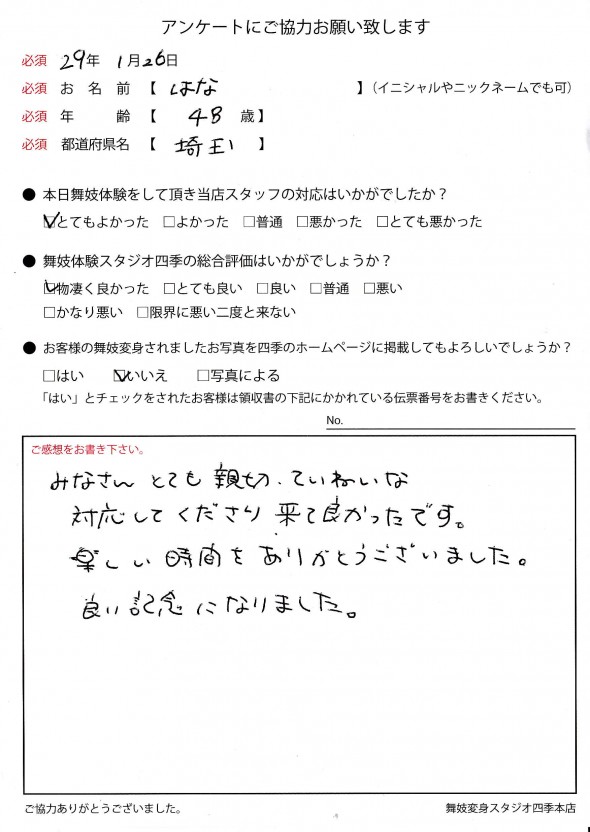 アンケートにご協力お願い致します
必須 29年 1月26日
必須 お名前 【 はな 】（イニシャルやニックネームでも可）
必須 年齢 【 48 歳】
必須 都道府県名 【 埼玉 】
● 本日舞妓体験をして頂き当店スタッフの対応はいかがでしたか？
☑とてもよかった □よかった □普通 □悪かった □とても悪かった
● 舞妓体験スタジオ四季の総合評価はいかがでしょうか？
☑物凄く良かった □とても良い □良い □普通 □悪い
□かなり悪い □限界に悪い二度と来ない
● お客様の舞妓変身されましたお写真を四季のホームページに掲載してもよろしいでしょうか？
□はい ☑いいえ □写真による
「はい」とチェックをされたお客様は領収書の下記にかかれている伝票番号をお書きください。
No.
ご感想をお書き下さい。
みなさん とても 親切、ていねいな
対応してくださり 来て良かったです。
楽しい時間をありがとうございました。
良い記念になりました。
ご協力ありがとうございました。
舞妓変身スタジオ四季本店